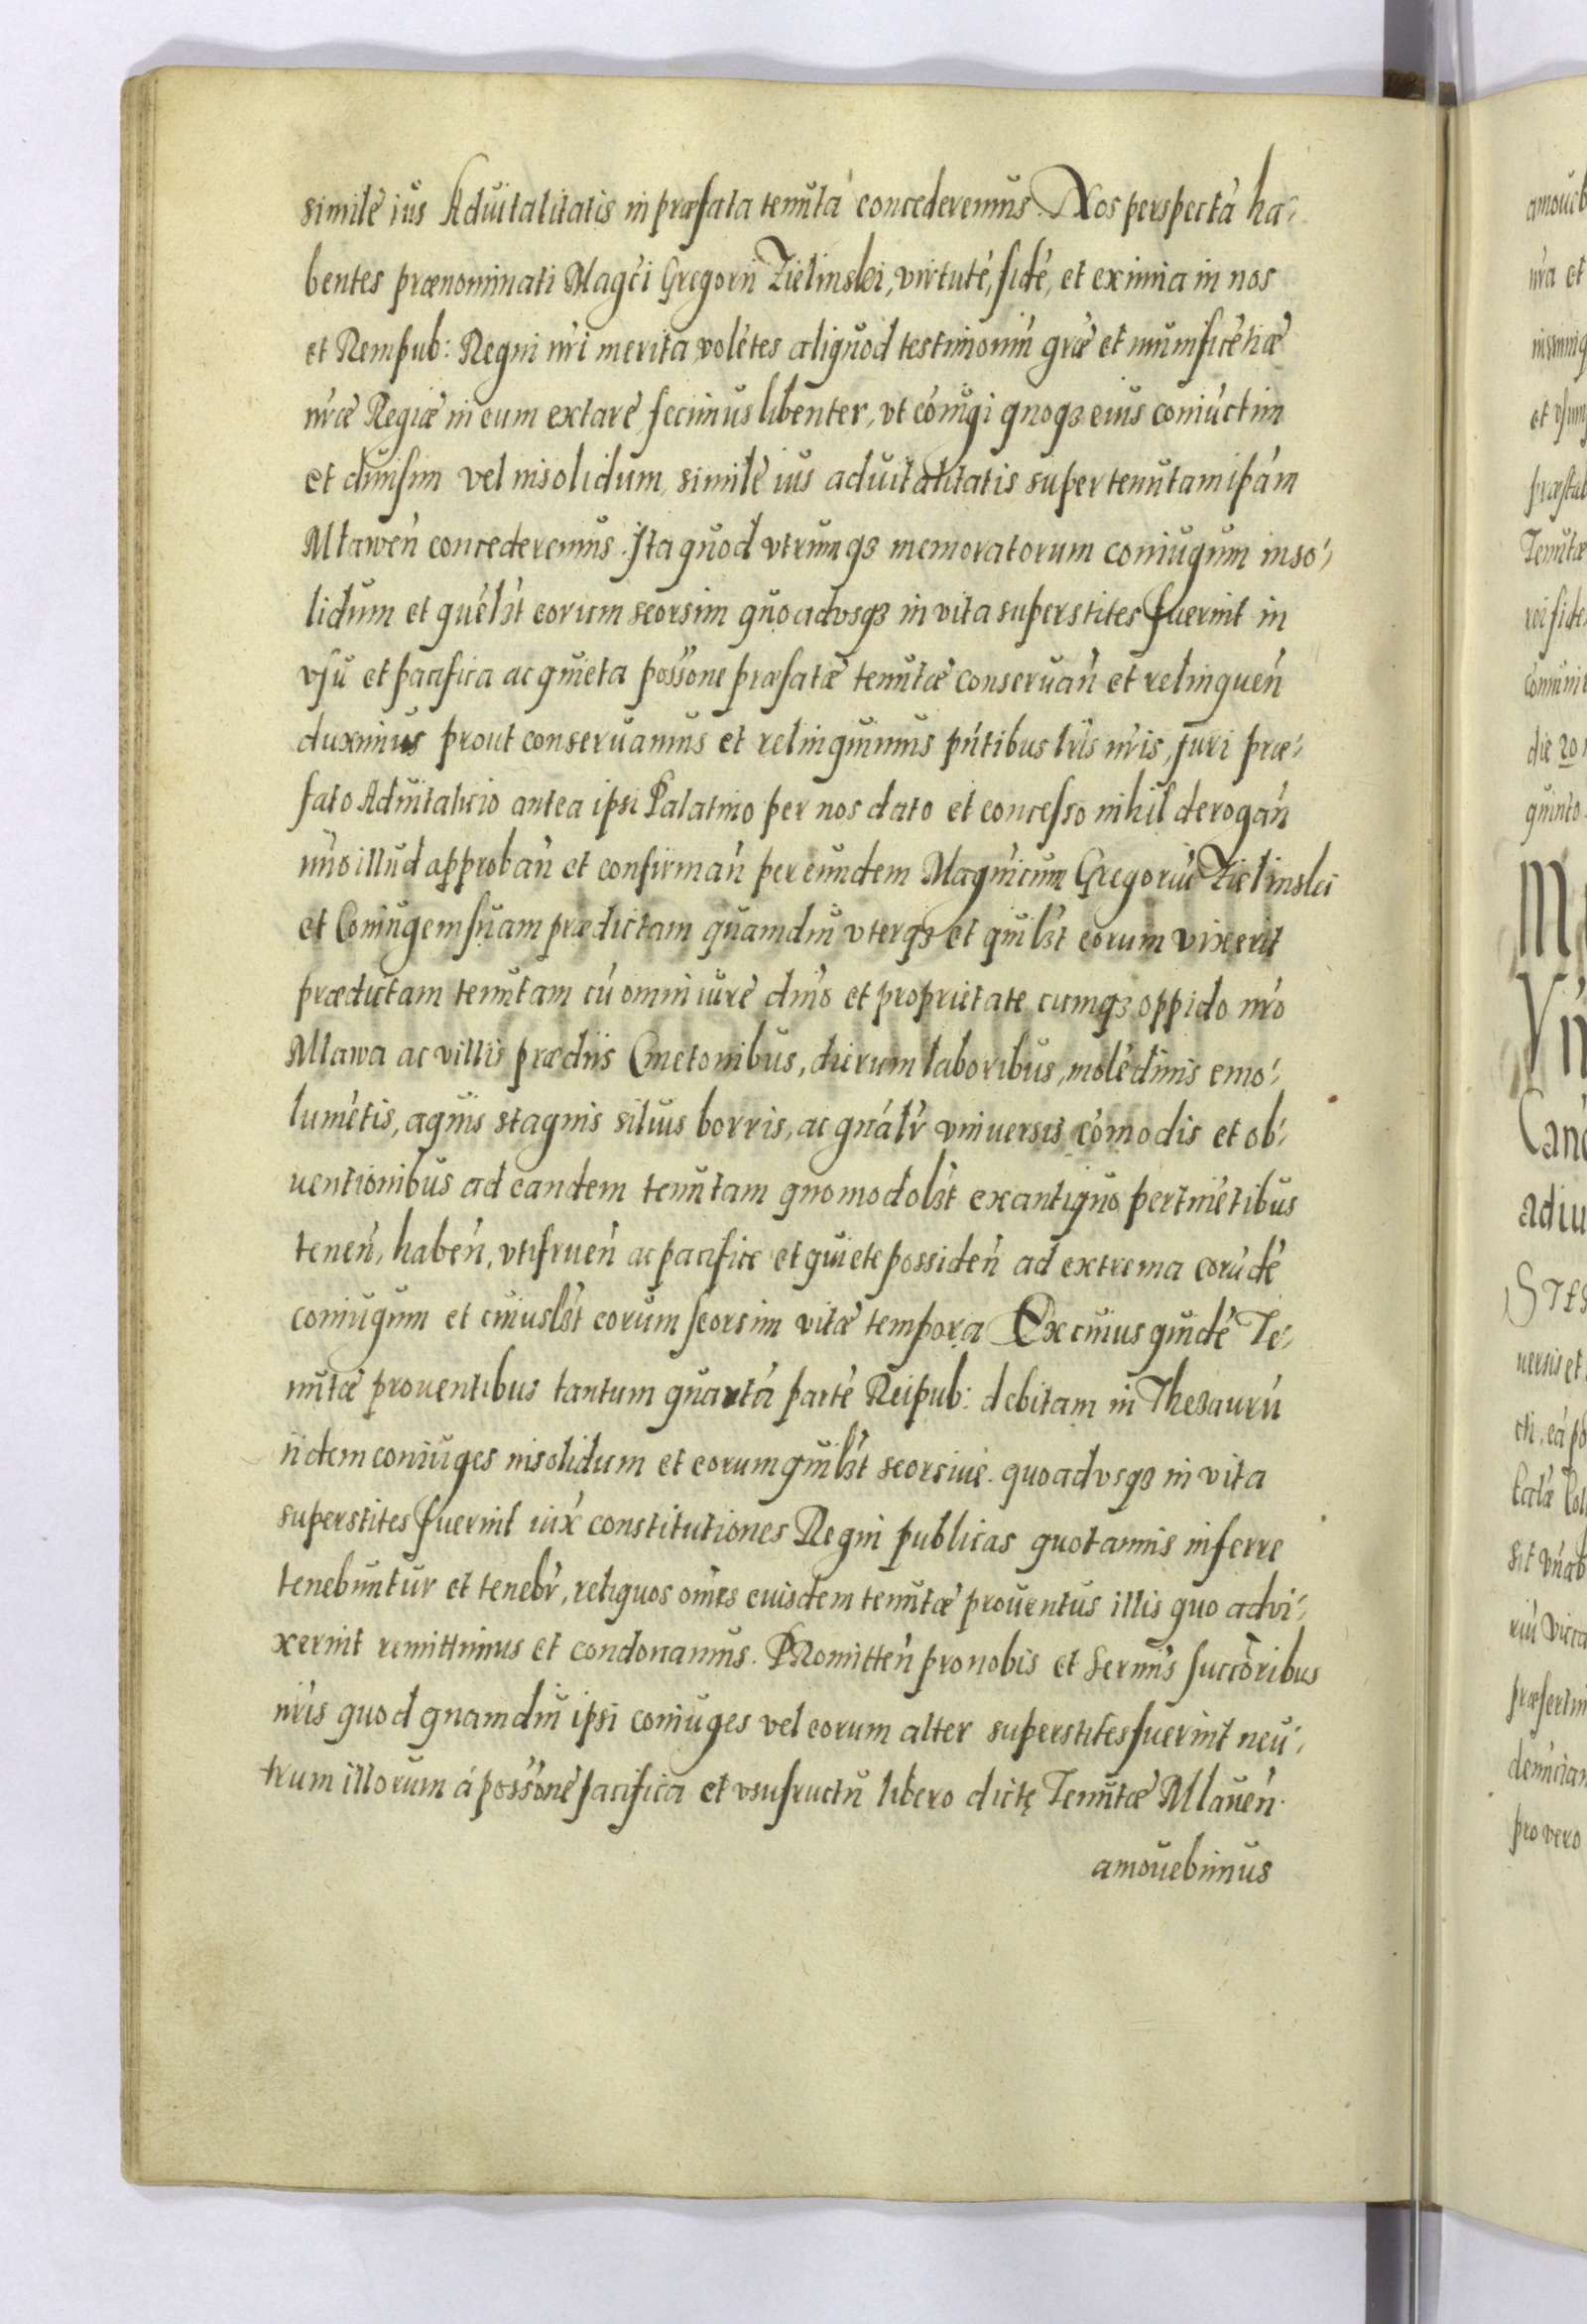 simile ius Aduitalitatis in præfata tenuta concederemus. Nos perspectá ha-
bentes prænominati Magci Gregorii Zielinski, virtuté, fidé, et eximia in nos
et Rempub: Regni nri merita, volétes aliquod testimoniú græ et munificétiæ
nræ Regiæ in eum extare, fecimus libenter, vt cóiugi quoqȝ eius coniúctim
et diuisim vel insolidum, simile ius aduitalitatis super tenutam ipám
Mlawen concederemus. Ita quod vtrumqȝ memoratorum coniugum inso-
lidum et quélȝt eorum seorsim quoadvsqȝ in vita superstites fuerint in
vsu et pacifica ac quieta possone præfatæ tenutæ conseruań et relinqueń
duximus prout conseruamus et relinquimus pntibus lris nris, juri præ-
fato Aduitalicio antea ipsi Palatino per nos dato et concesso nihil derogań
imo illud approbań et confirmań per eundem Magnicum Gregoriú Zielinski
et Coniugem suam prædictam quamdiu vterqȝ et quilȝt eorum vixerit
prædictam tenutam cú omni iure dnio et proprietate cumqȝ oppido nro
Mlawa ac villis prædiis Cmetonibus, dierum laboribus, molédinis emo-
lumétis, aquis stagnis siluis borris, ac gnálr vniuersis cómodis et ob-
uentionibus ad eandem tenutam quomodolȝt exantiquo pertinétibus
teneń, habeń, vtifrueń ac pacifice et quiete possideń ad extrema eorúdé
coniugum et cuiuslȝt eorum seorsim vitæ tempora Ex cuius quidé Te-
nutæ prouentibus tantum quartá parté Reipub: debitam in Thesaurú
iidem coniuges insolidum et eorum quilȝt seorsiue quoadvsqȝ in vita
superstites fuerint iux constitutiones Regni publicas quotannis inferre
tenebuntur et tenebr, reliquos omes euisdem tenutæ prouentus illis quo advi-
xerint remittimus et condonamus. PRomitteń pro nobis et Sermis succoribus
nris quod quamdiu ipsi coniuges vel eorum alter superstites fuerint neu-
trum illorum á possone pacifica et vsufructu libero dictę Tenutæ Mlaueń
amouebimus